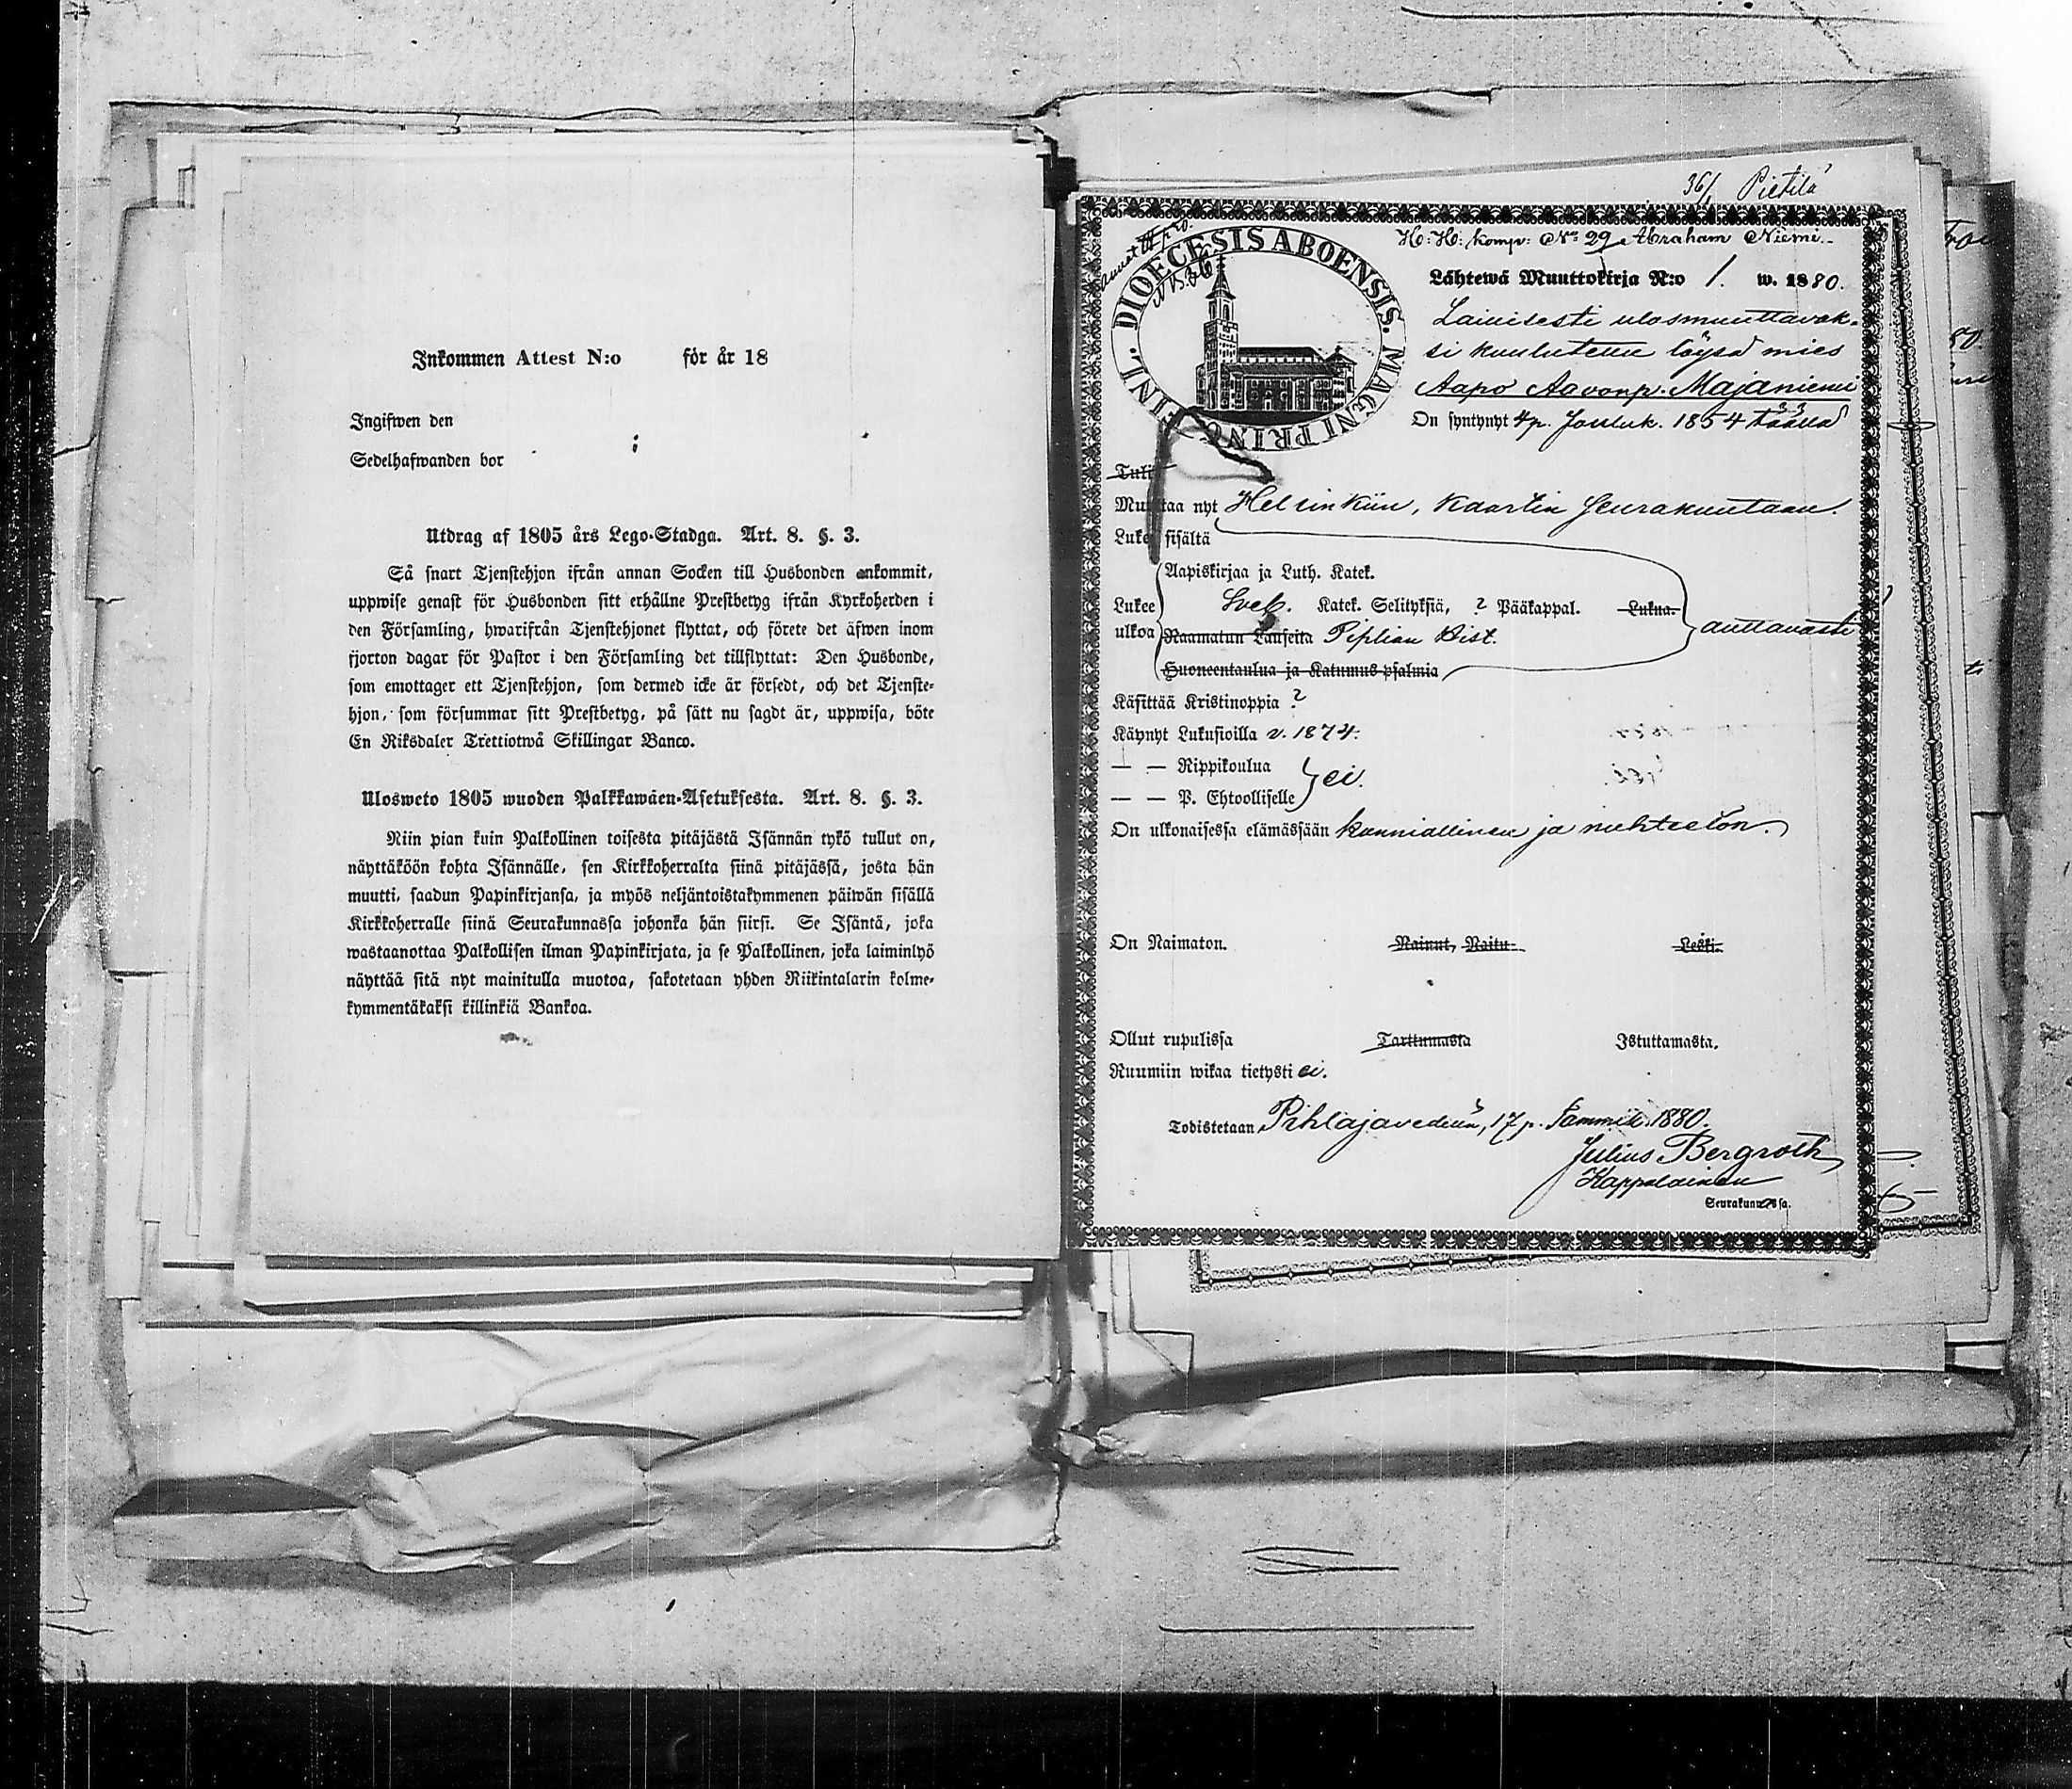 Inkommen Attest N:o för år 18
Ingifwen den
Sedelhafwanden bor
Utdrag af 1805 års Lego-Stadga. Art. 8. §. 3.
Så snart Tjenstehjon ifrån annan Socken till Husbonden ankommit,
uppwise genast för Husbonden sitt erhållne Prestbetyg ifrån Kyrkoherden i
den Församling, hwarifrån Tjenstehjonet flyttat, och förete det äfwen inom
fjorton dagar för Pastor i den Församling det tillflyttat: Den Husbonde,
som emottager ett Tjenstehjon, som dermed icke är försedt, och det Tjenste-
hjon, som försummar sitt Prestbetyg, på sätt nu sagdt är, uppwisa, böte
En Riksdaler Trettiotwå Skillingar Banco.
Ulosweto 1805 wuoden Palkkawäen-Asetuksesta. Art. 8. §. 3.
Niin pian kuin Palkollinen toisesta pitäjästä Isännän tykö tullut on,
näyttäköön kohta Isännälle, sen Kirkkoherralta siinä pitäjässä, josta hän
muutti, saadun Papinkirjansa, ja myös neljäntoistakymmenen päiwän sisällä
Kirkkoherralle siinä Seurakunnassa johonka hän siirsi. Se Isäntä, joka
wastaanottaa Palkollisen ilman Papinkirjata, ja se Palkollinen, joka laiminlyö
näyttää sitä nyt mainitulla muotoa, sakotetaan yhden Riikintalarin kolme-
kymmentäkaksi killinkiä Bankoa.
36/ Pietilä
H: H: komp: No 29 Abraham Niemi
DIOECESIS ABOENSIS. MAGNI PRINC. FINL.
Lähtewä Muuttokirja N:o 1. w. 1880.
Laillisesti ulosmuuttavak-
si kuulutettu löysä mies
Aapo Aavonp. Majaniemi
On syntynyt 4 p. Jouluk. 1854 täällä
Tuli
Muuttaa nyt Helsinkiin, Kaartin Seurakuntaan.
Lukee sisältä
Aapiskirjaa ja Luth. Katek.
Lukee Sveb. Katek. Selityksiä, ? Pääkappal. Lukua.
ulkoa Raamatun Lauseita Piplian Hist. auttavasti
Huoneentaulua ja Katumus-psalmia
Käsittää Kristinoppia ?
Käynyt Lukusioilla v. 1874.
— — Rippikoulua
ei.
— — P. Ehtoolliselle
On ulkonaisessa elämässään kunniallinen ja nuhteeton.
On Naimaton. Nainut, Naitu Leski.
Ollut rupulissa Tarttumasta Istuttamasta.
Ruumiin wikaa tietysti ei.
Todistetaan Pihlajavedellä, 17 p. Tammik. 1880.
Julius Bergroth
Kappalainen
Seurakunnassa.